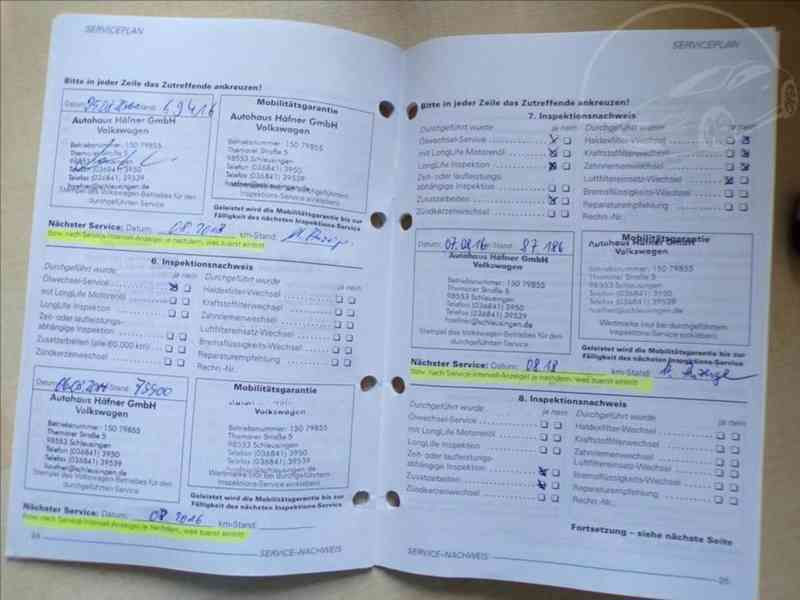 SERVICEPLAN
Bitte in jeder Zeile das Zutreffende ankreuzen!
Datum: km-Stand: 69416
Autohaus Häfner GmbH
Volkswagen
Betriebsnummer: 150 79855
Themarer Straße 5
98553 Schleusingen
Telefon (036841) 3950
Telefax (036841) 39559
hoefner@schleusingen.de
Stempel des Volkswagen-Betriebes für den
durchgeführten Service
Mobilitätsgarantie
Autohaus Häfner GmbH
Volkswagen
Betriebsnummer: 150 79855
Themarer Straße 5
98553 Schleusingen
Telefon (036841) 3950
Telefax (036841) 39559
Inspektions-Service einkleben)
Geleistet wird die Mobilitätsgarantie bis zur
Fälligkeit des nächsten Inspektions-Service
Nächster Service: Datum: km-Stand:
bzw. nach Service-Intervall-Anzeige! je nachdem, was zuerst eintritt
6. Inspektionsnachweis
Durchgeführt wurde ja nein
Ölwechsel-Service
mit LongLife Motorenöl
LongLife Inspektion
Zeit- oder laufleistungs-
abhängige Inspektion
Zusatzarbeiten (alle 60.000 km)
Zündkerzenwechsel
Durchgeführt wurde ja nein
Haldexfilter-Wechsel
Kraftstoffilterwechsel
Zahnriemenwechsel
Luftfiltereinsatz-Wechsel
Bremsflüssigkeits-Wechsel
Reparaturempfehlung
Rechn.-Nr.
Datum: km-Stand: 75900
Autohaus Häfner GmbH
Volkswagen
Betriebsnummer: 150 79855
Themarer Straße 5
98553 Schleusingen
Telefon (036841) 3950
Telefax (036841) 39559
Stempel des Volkswagen-Betriebes für den
durchgeführten Service
Mobilitätsgarantie
Volkswagen
Betriebsnummer: 150 79855
Themarer Straße 5
98553 Schleusingen
Telefon (036841) 3950
Telefax (036841) 39559
Inspektions-Service einkleben)
Geleistet wird die Mobilitätsgarantie bis zur
Fälligkeit des nächsten Inspektions-Service
Nächster Service: Datum: 08 2016 km-Stand:
bzw. nach Service-Intervall-Anzeige! je nachdem, was zuerst eintritt
24
SERVICE-NACHWEIS
SERVICEPLAN
Bitte in jeder Zeile das Zutreffende ankreuzen!
7. Inspektionsnachweis
Durchgeführt wurde ja nein
Ölwechsel-Service
mit LongLife Motorenöl
LongLife Inspektion
Zeit- oder laufleistungs-
abhängige Inspektion
Zusatzarbeiten
Zündkerzenwechsel
Durchgeführt wurde ja nein
Haldexfilter-Wechsel
Kraftstoffilterwechsel
Zahnriemenwechsel
Luftfiltereinsatz-Wechsel
Bremsflüssigkeits-Wechsel
Reparaturempfehlung
Rechn.-Nr.
Datum: 07.08.16 km-Stand: 87 186
Autohaus Häfner GmbH
Volkswagen
Betriebsnummer: 150 79855
Themarer Straße 5
98553 Schleusingen
Telefon (036841) 3950
Telefax (036841) 39559
hoefner@schleusingen.de
Stempel des Volkswagen-Betriebes für den
durchgeführten Service
Mobilitätsgarantie
Volkswagen
Betriebsnummer: 150 79855
Themarer Straße 5
98553 Schleusingen
Telefon (036841) 3950
Telefax (036841) 39559
Inspektions-Service einkleben)
Geleistet wird die Mobilitätsgarantie bis zur
Fälligkeit des nächsten Inspektions-Service
Nächster Service: Datum: 08.18 km-Stand:
bzw. nach Service-Intervall-Anzeige! je nachdem, was zuerst eintritt
8. Inspektionsnachweis
Durchgeführt wurde ja nein
Ölwechsel-Service
mit LongLife Motorenöl
LongLife Inspektion
Zeit- oder laufleistungs-
abhängige Inspektion
Zusatzarbeiten
Zündkerzenwechsel
Durchgeführt wurde ja nein
Haldexfilter-Wechsel
Kraftstoffilterwechsel
Zahnriemenwechsel
Luftfiltereinsatz-Wechsel
Bremsflüssigkeits-Wechsel
Reparaturempfehlung
Rechn.-Nr.
Fortsetzung – siehe nächste Seite
SERVICE-NACHWEIS
25